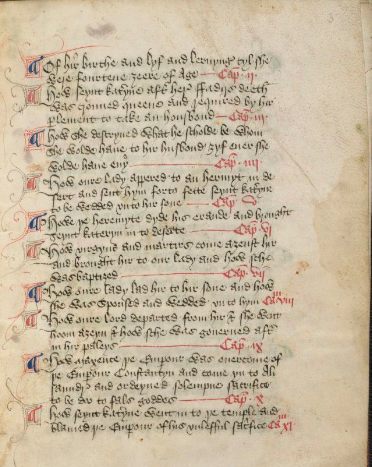 Of hir birthe and lyf and lernyng tyl sche
were fourtene ȝeere of Age — Capᵐ ii
How seynt Katyne aft her ffadris deeth
was crouned queene and required by hir
plement to take an housbond — Capᵐ iii
how she descryued what he scholde be whom
she wolde haue to hir husbond ȝyf euer she
wolde haue eny — Capᵐ iiii
How oure lady appered to an hermyt in de
sert and sent hym forto fette seynt katyne
to be wedded vnto hir sone — Capᵐ v
How þe heremyte dyde his erande and brought
seynt kateryn in to deserte — Capᵐ vi
How virgyns and martirs come aȝenst hir
and brought hir to our lady and how sche
was baptized — Capᵐ vii
How oure lady lad hir to hir sone and how
she was spoused and wedded vn to hym Ca viii
How oure lord departed from hir & she went
hoom aȝeyn & how sche was gouerned aft
in hir paleys — Capᵐ ix
How maxence þe Empour was ouercome of
þe Empour Constantyn and come vn to Ali
saundr and ordeyned solempne sacrifice
to be do to fals goddes — Capᵐ x
how seynt katyne went in to þe temple and
blamed þe Empour of his vnlefful sacrifice Ca xi